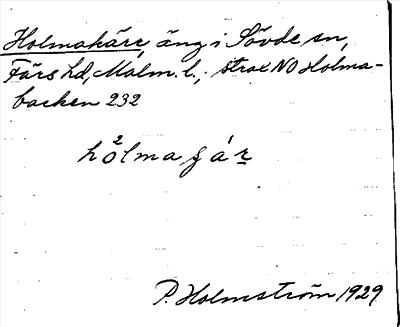 Holmakärr, äng i Sövde sn,
Färs hd, Malm. l.; strax NO Holma-
backen 232
hò²lmagár
P. Holmström 1929